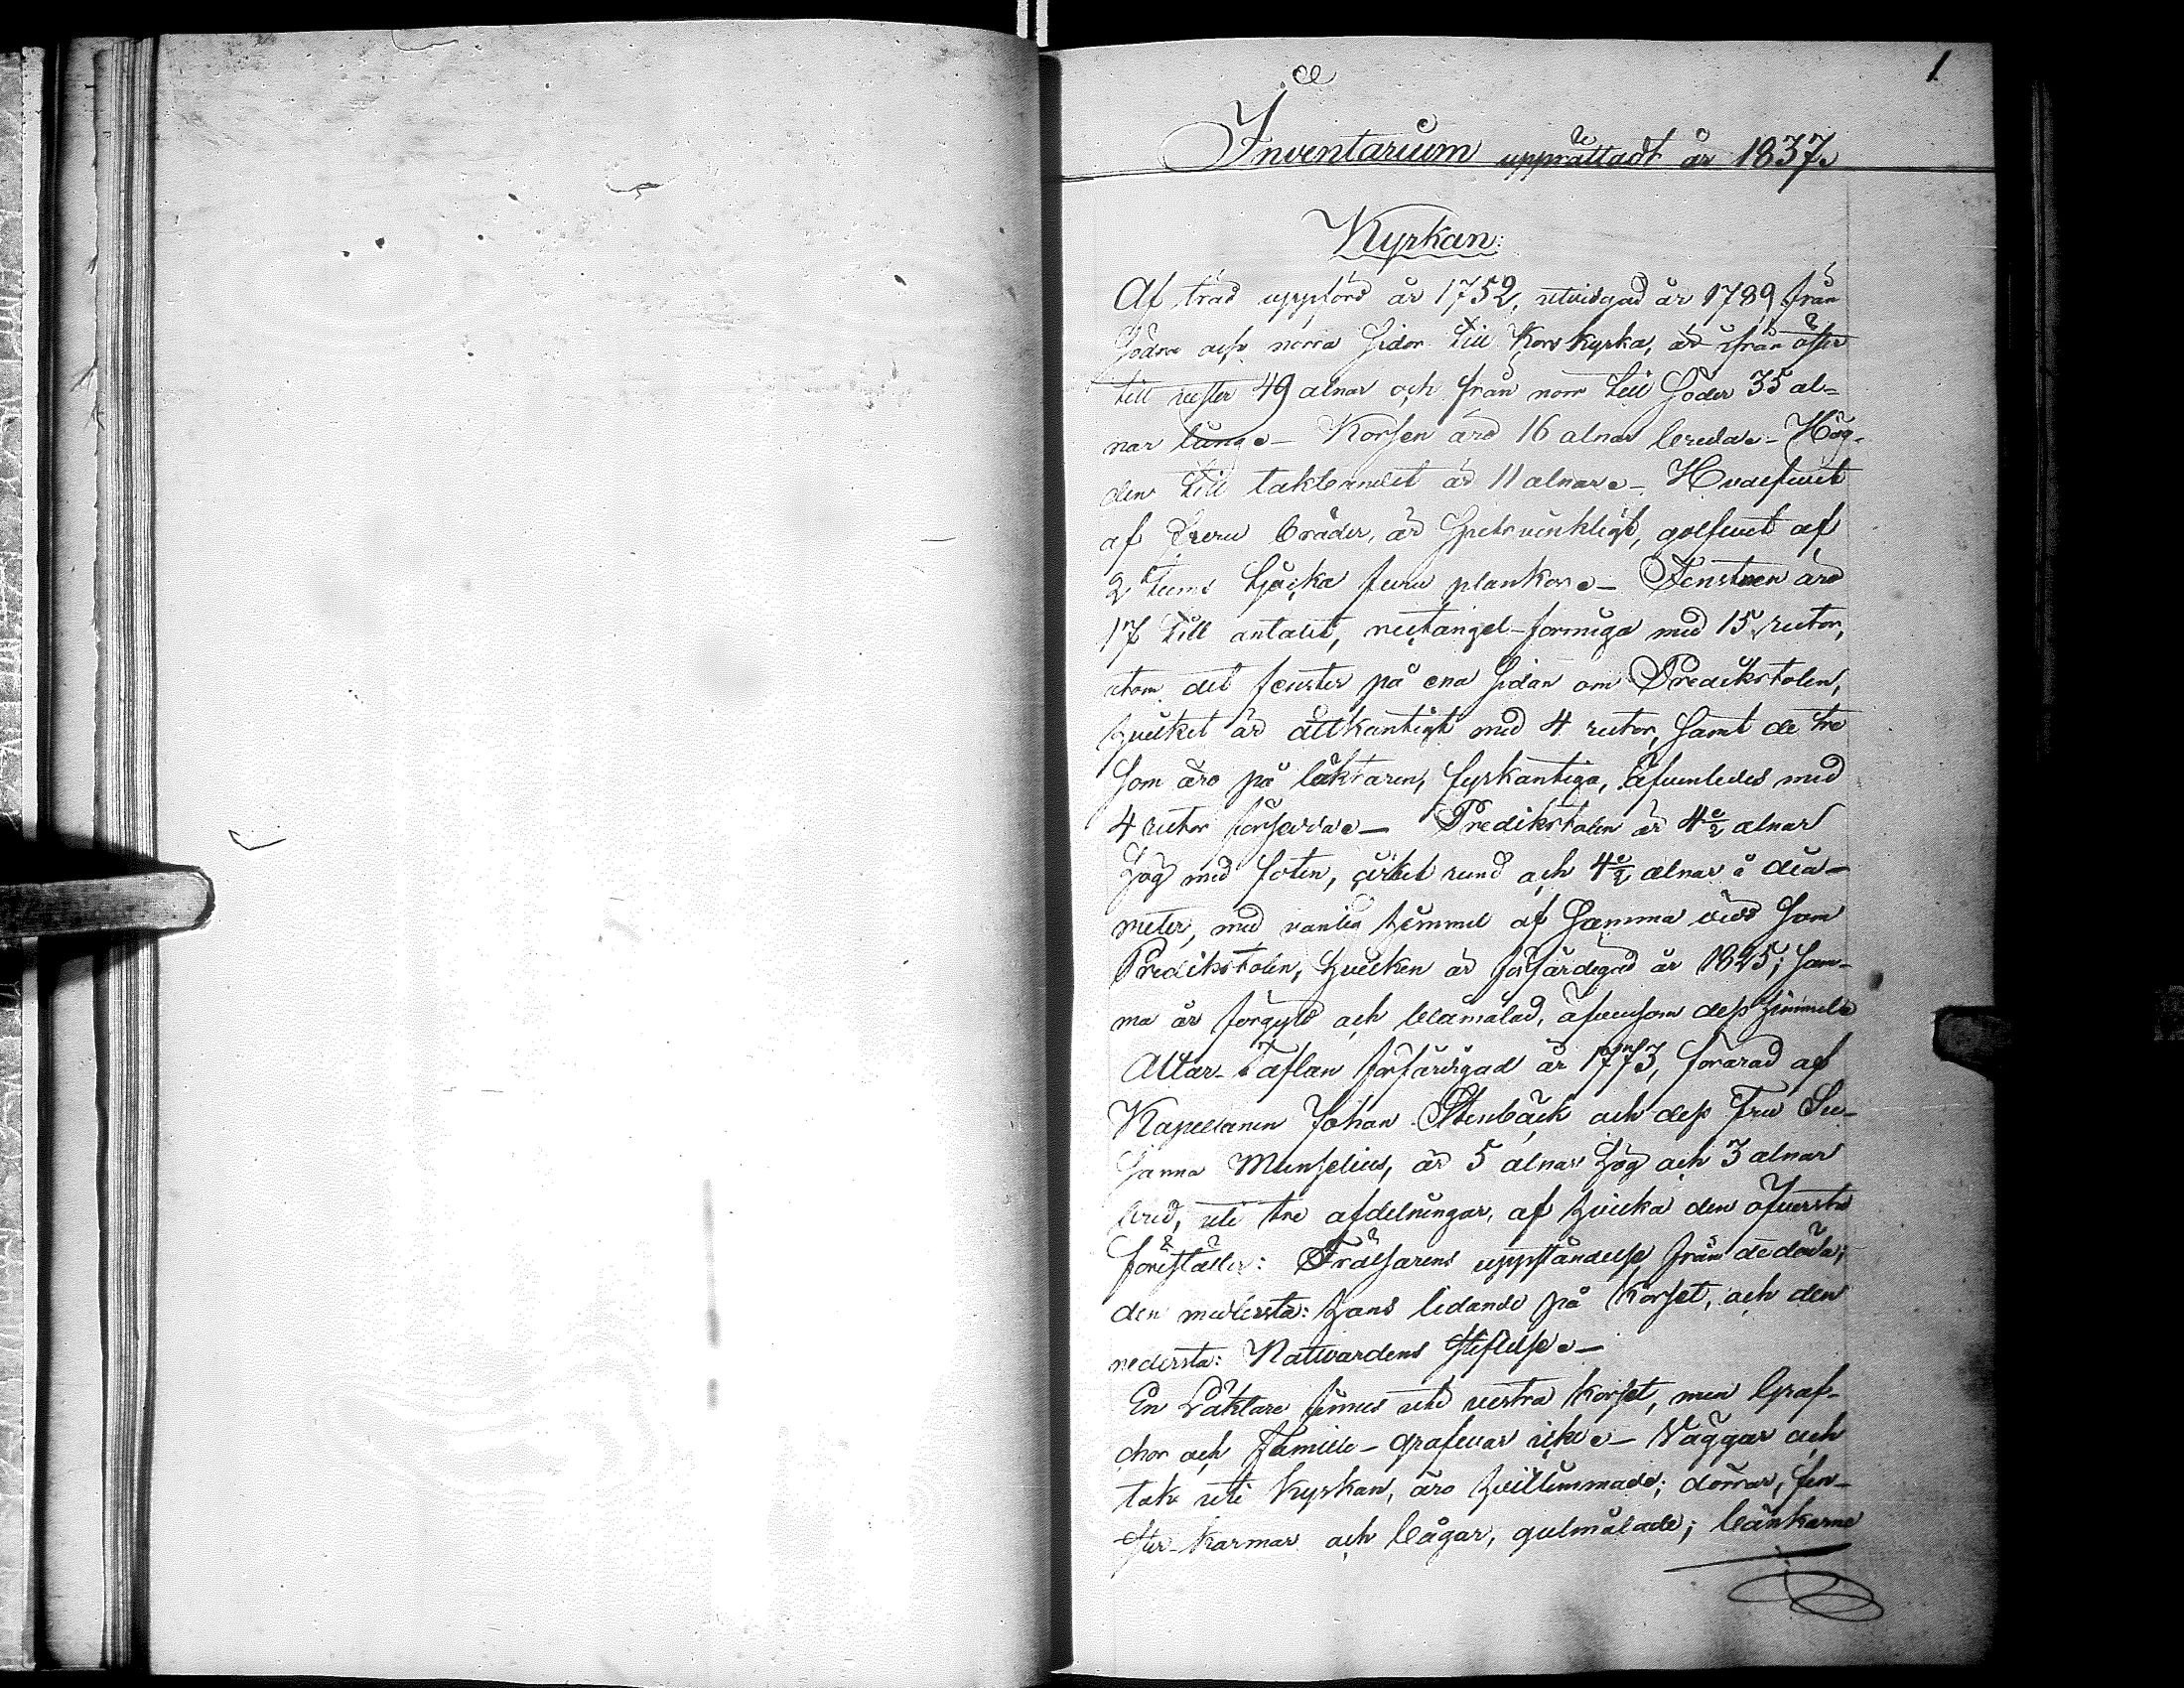 1
Inventarium upprättadt år 1837.
Kyrkan:
Af träd uppförd år 1752, utvidgad år 1789 från
Södra och norra Sidor till Kors kyrka, är ifrån öster
till wester 49 alnar och från norr till Söder 35 al-
nar lång. – Korsen äro 16 alnar breda. – Hög-
den till takbandet är 11 alnar. – Hvalfvet
af bräder, är Spetsvinkligt, golfvet af
2 tums tjocka furu plankor. – Fenstren äro
17 till antalet, rectangel-formiga med 15 rutor,
utom det fenster på ena Sidan om Predikstolen,
hvilket är åttkantigt med 4 rutor, Samt de tre
Som äro på läktaren, fyrkantiga, äfvenledes med
4 rutor försedda. – Predikstolen är 4½ alnar
hög med foten, cirkel rund och 4½ alnar i dia-
meter, med vanlig himmel af Samma vidd Som
Predikstolen, hvilken är förfärdigad år 1825; Sam-
ma år förgyld och blåmålad, äfvensom dess himmel.
Altar-Taflan förfärdigad år 1773, förärad af
Kapellanen Johan Stenbäck och dess Fru Su-
Sanna Munselius, är 5 alnar hög och 3 alnar
bred, uti tre afdelningar, af hvilka den öfversta
föreställer: Frälsarens uppståndelse från de döda;
den medlersta: hans lidande på korset, och den
nedersta: Nattvardens Stiftelse. –
En Läktare finnes uti vestra korset, men Graf-
chor och Famille-grafvar icke. – Väggar och
tak uti kyrkan, äro hvitlimmade; dörrar, fen-
ster-karmar och bågar, gulmålade; bänkarne